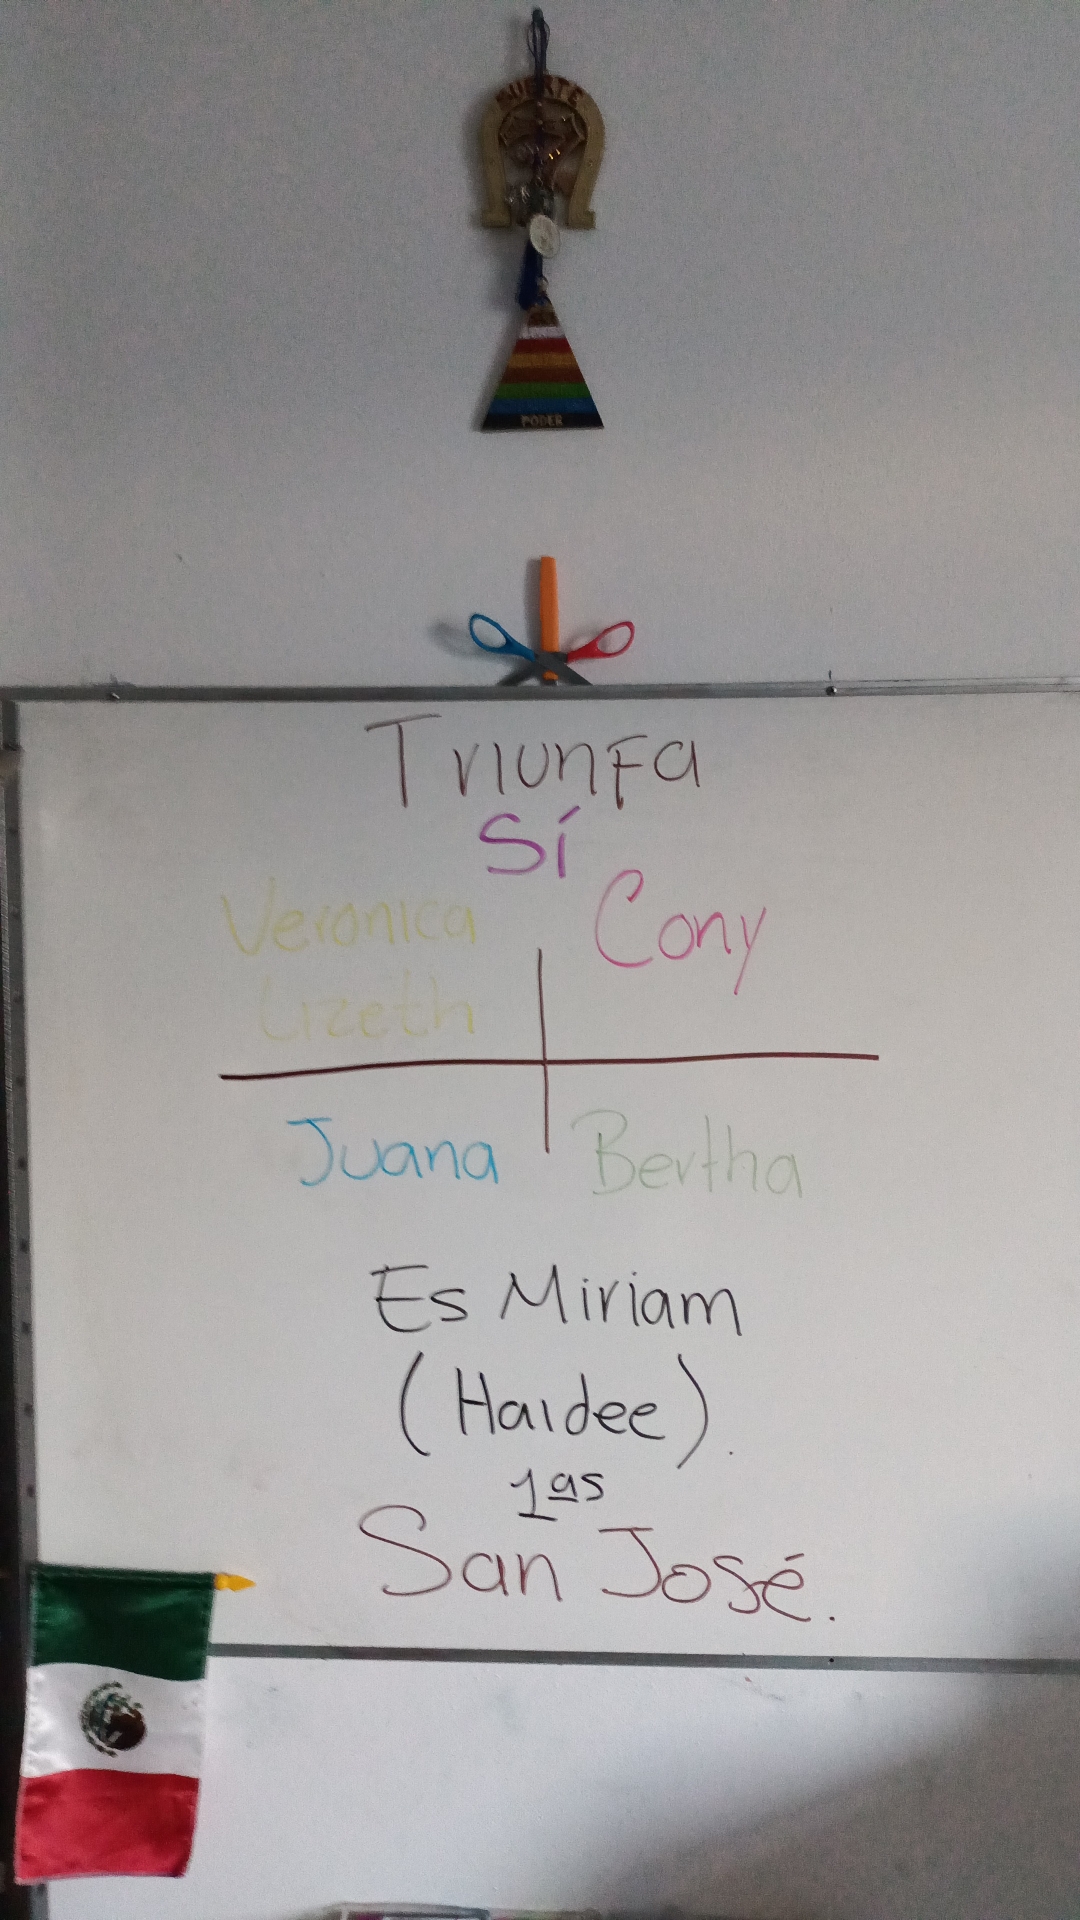 SUERTE
PODER
Triunfa
Sí
Veronica
Lizeth
Cony
Juana
Bertha
Es Miriam
(Haidee).
1as
San José.